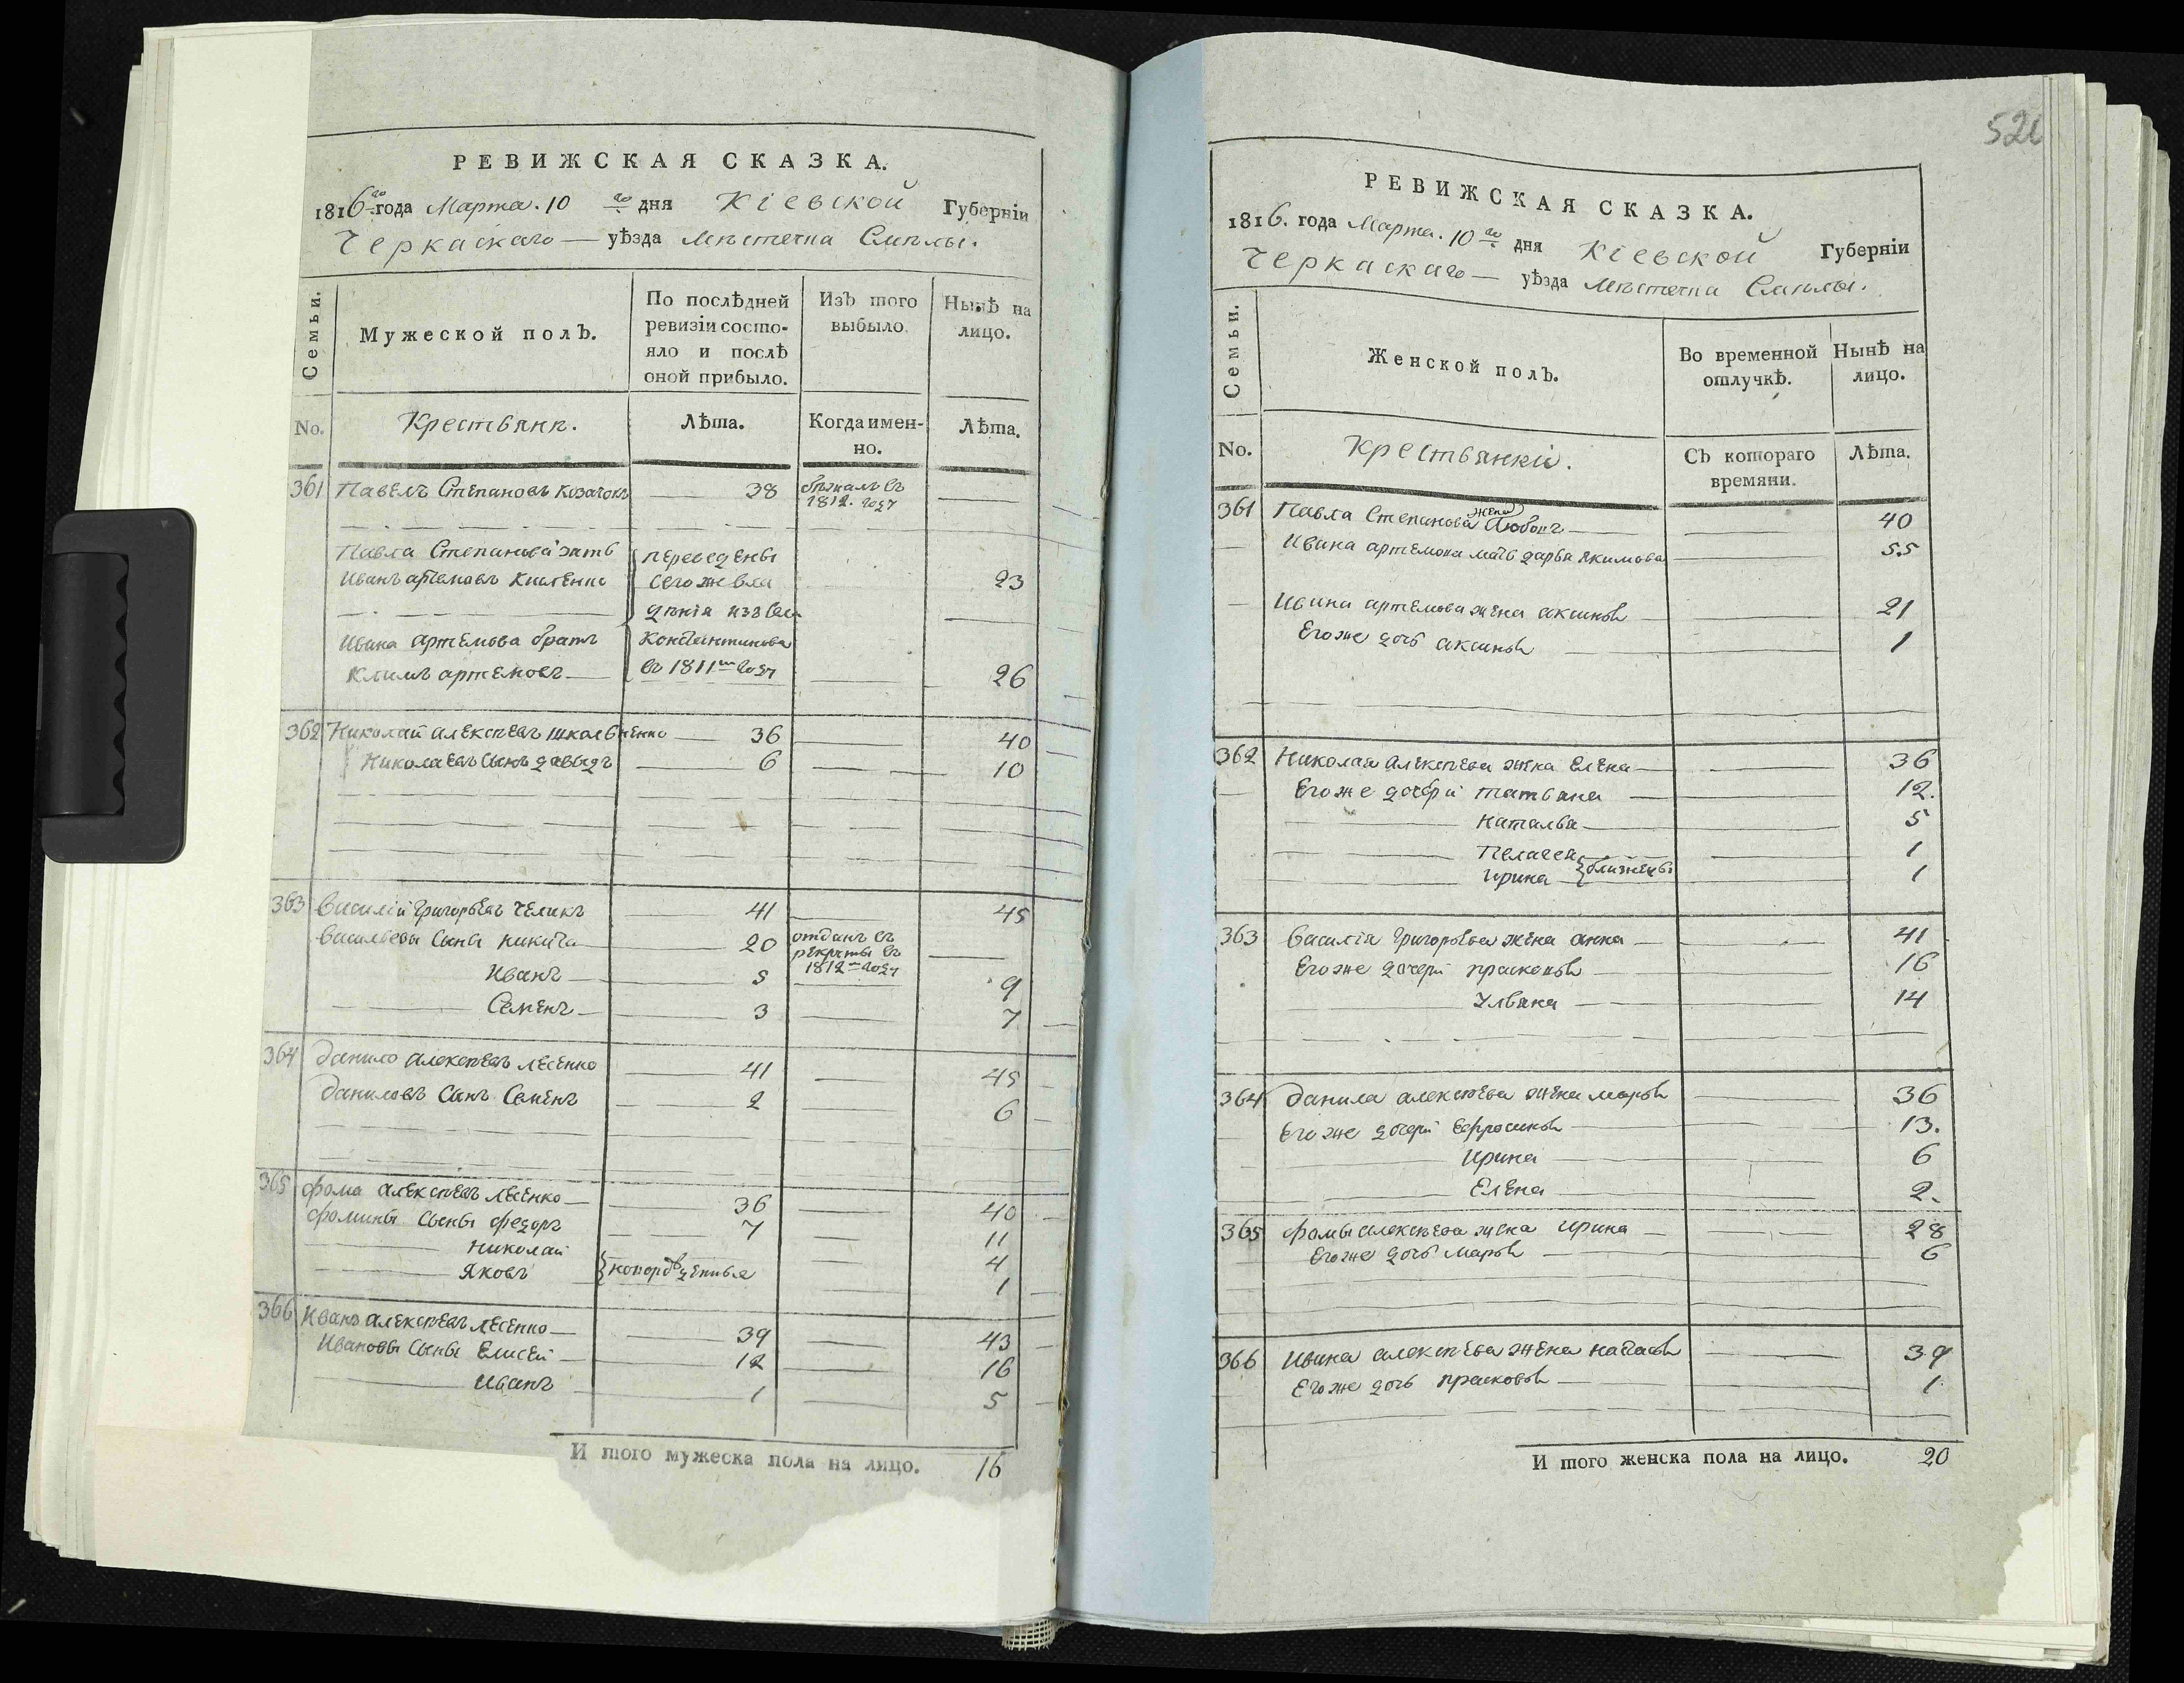 РЕВИЖСКАЯ СКАЗКА.
1816го года Марта. 10 го дня Кіевской Губерніи
Черкаскаго — уѣзда Мѣстечка Смѣлы.
Семьи.
Мужеской полъ.
По послѣдней ревизіи состо-
яло и послѣ
оной прибыло.
Изъ того
выбыло.
Нынѣ на
лицо.
No.
Крестьяни.
Лѣта.
Когда имен-
но.
Лѣта.
361 Павелъ Степановъ Козачокъ — 38 бѣжалъ въ
1812. году
Павла Степанова зять переведены
Иванъ артемовъ сего же вла 23
дѣнія изъ
Ивана артемова братъ Константинова
Климъ артемовъ — въ 1811м году 26
362 Николай алексѣевъ школьненко — 36 — 40
Николаевъ сынъ давыдъ — 6 — 10
363 Василій григорьевъ Челикъ — 41 — 45
Васильевы сыны никита — 20 отданъ въ
рекруты въ
1812м году
Иванъ — 5 — 9
Семенъ — 3 — 7
364 Данило алексѣевъ лесенко — 41 — 45
Даниловъ сынъ Семенъ — 2 — 6
365 фома алексѣевъ лесенко — 36 — 40
фомины сыны федоръ — 7 — 11
Николай 4
Яковъ новорожденныя 1
366 Иванъ алексѣевъ лесенко — 39 — 43
Ивановы сыны Елисей — 12 — 16
Иванъ — 1 — 5
И того мужеска пола на лицо. 16
РЕВИЖСКАЯ СКАЗКА.
1816. года Марта. 10 го дня Кіевской Губерніи
Черкаскаго — уѣзда Мѣстечка Смѣлы.
Семьи.
Женской полъ.
Во временной
отлучкѣ.
Нынѣ на
лицо.
No.
Крестьянки.
Съ котораго
времяни.
Лѣта.
361 Павла Степанова жена Любовъ — 40
Ивана артемова мать дарья Якимова — 55
Ивана артемова жена аксинья — 21
Его же дочь аксинья — 1
362 Николая алексѣева жена Елена — 36
Его же дочери татьяна — 12.
Наталья — 5
Пелагея 1
Ирина близнецы 1
363 Василія григорьева жена анна — 41
Его же дочери прасковья — 16
Ульяна — 14
364 Данила алексѣева жена марья — 36
Его же дочери Евфросинья — 13.
Ирина — 6
Елена — 2.
365 фомы алексѣева жена ирина — 28
Его же дочь марья — 6
366 Ивана алексѣева жена наталья — 39
Его же дочь прасковья — 1
И того женска пола на лицо. 20